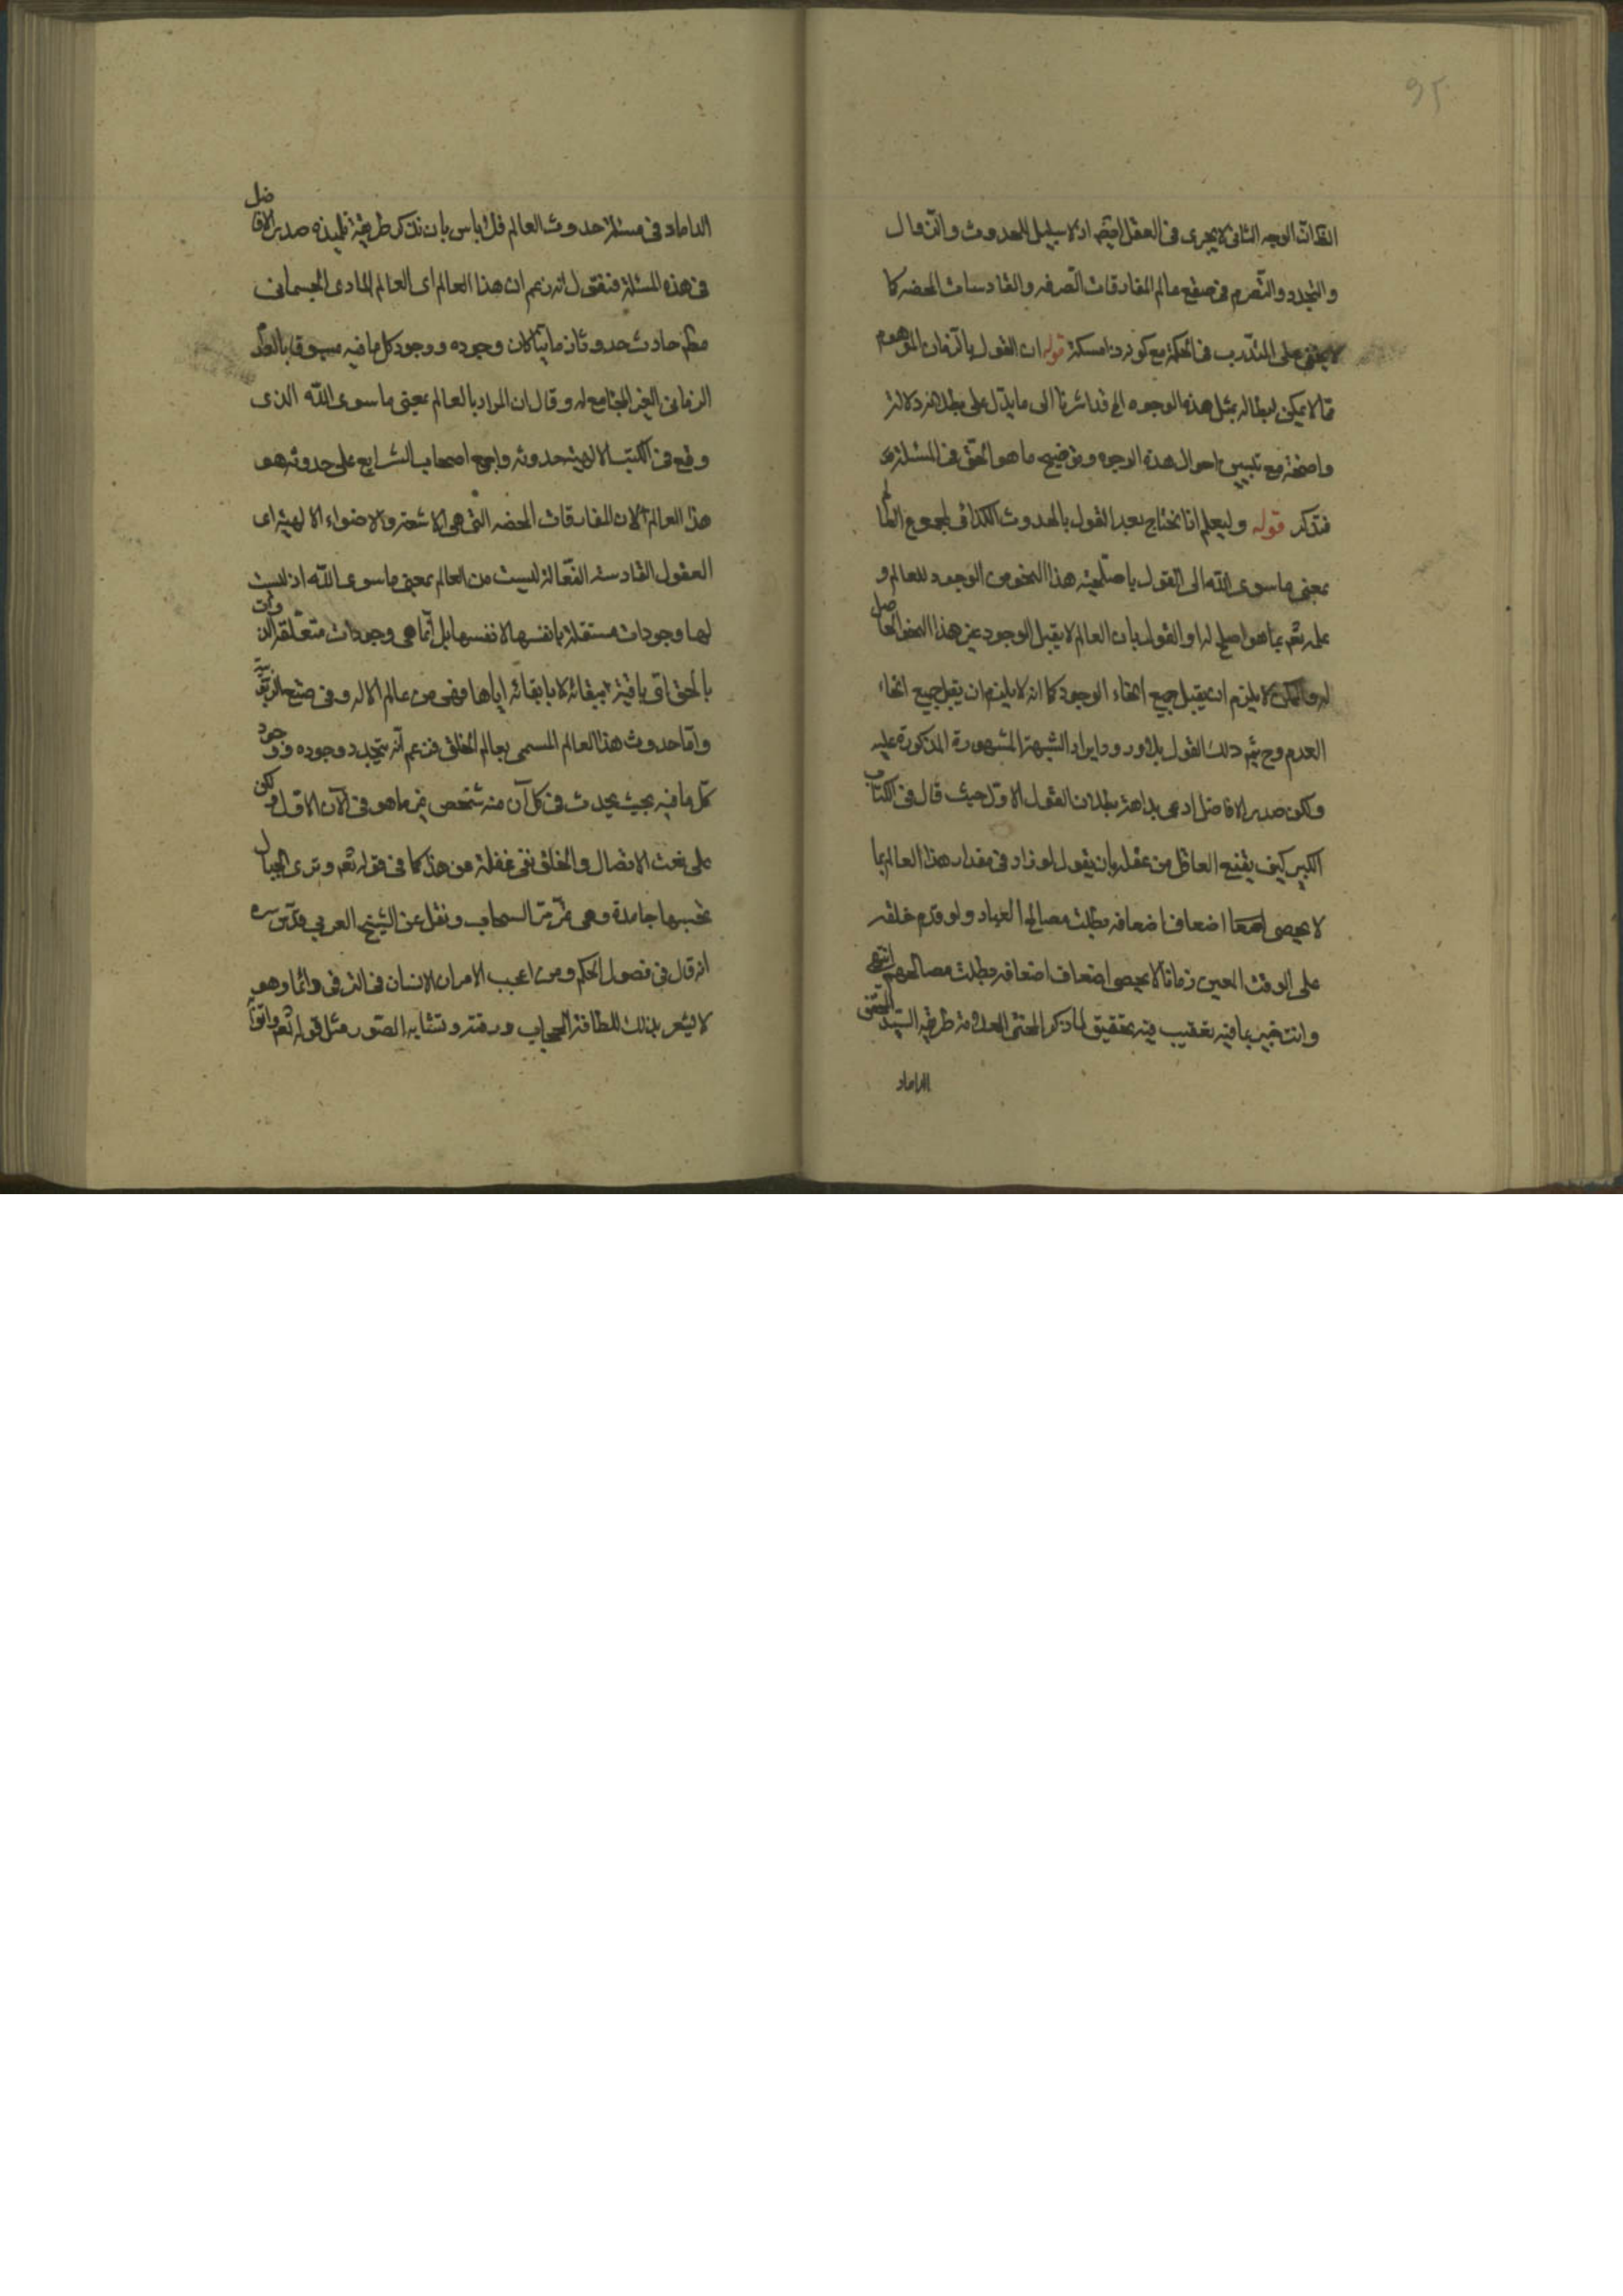 ٩٢
الذات الوجه الثانی لا یجری فی العقل ایضا اذ لا سبیل للحدوث والزوال
والتجدد والتصرم فی صقع عالم المفارقات الصرفه والقادسات المحضه کما
لا یخفی علی المتدرب فی الحکمة مع کونه ذا مسکة قوله ان القول بالزمان الموهوم
مما لا یمکن ابطاله بمثل هذه الوجوه الخ قد اشرنا الی ما یدل علی بطلانه دلالة
واضحة مع تبیین احوال هذه الوجوه وتوضیح ما هو الحق فی المسئلة
فتذکر قوله ولیعلم انا نحتاج بعد القول بالحدوث الکذائی لمجموع العالم
بمعنی ما سوی الله الی القول باصلحیة هذا النحو من الوجود للعالم و
علمه تعم بما هو اصلح له او القول بان العالم لا یقبل الوجود غیر هذا النحو الحاصل
له والممکن لا یلزم ان یقبل جمیع انحاء الوجود کما انه لا یلزم ان یقبل جمیع انحاء
العدم وح یتم ذلک القول بلا ورود ایراد الشبهة المشهورة المذکورة علیه
ولکن صدر الافاضل ادعی بداهة بطلان القول الاول حیث قال فی الکتاب
الکبیر کیف یقنع العاقل من عقله بان یقول لو زاد فی مقدار هذا العالم بما
لا یحصی اضعافا اضعافه بطلت مصالح العباد ولو قدم خلقه
علی الوقت المعین زمانا لا یحصی اضعاف اضعافه بطلت مصالحهم انتهی
وانت خبیر بما فیه تعقیب فیه تحقیق لما ذکر المحشی العلامة طریقة السید المحقق
الداماد
الداماد فی مسئلة حدوث العالم فلا باس بان نذکر طریقة تلمیذه صدر الافاضل
فی هذه المسئلة فنقول انه زعم ان هذا العالم ای العالم المادی الجسمانی
حادث حدوثا زمانیا کان وجوده ووجود کل ما فیه مسبوقا بالعدم
الزمانی الغیر المجامع له وقال ان المراد بالعالم بمعنی ما سوی الله الذی
وقع فی الکتب الالهیة حدوثه واجمع اصحاب الشرایع علی حدوثه هو
هذا العالم لان المفارقات المحضه التی هی الاشعة والاضواء الالهیة ای
العقول القادسة الفعالة لیست من العالم بمعنی ما سوی الله اذ لیست
لها وجودات مستقلة بانفسها لانفسها بل انما هی وجودات متعلقة الذوات
بالحق الباقیة ببقائه لا بابقائه ایاها فهی من عالم الاله وفی صقع الربوبیة
واما حدوث هذا العالم المسمی بعالم الخلق فزعم انه یتجدد وجوده ووجود
کل ما فیه بحیث یحدث فی کل آن منه شخص غیر ما هو فی الآن الاول ولکن
علی نعت الاتصال والخلق فی غفلة من هذا کما فی قوله تعم وتری الجبال
تحسبها جامدة وهی تمر مر السحاب ونقل عن الشیخ العربی قدس سره
انه قال فی فصول الحکم ومن اعجب الامر ان الانسان فی الترقی دائما وهو
لا یشعر بذلک للطافة الحجاب ورقته وتشابه الصور مثل قوله تعم واتوا